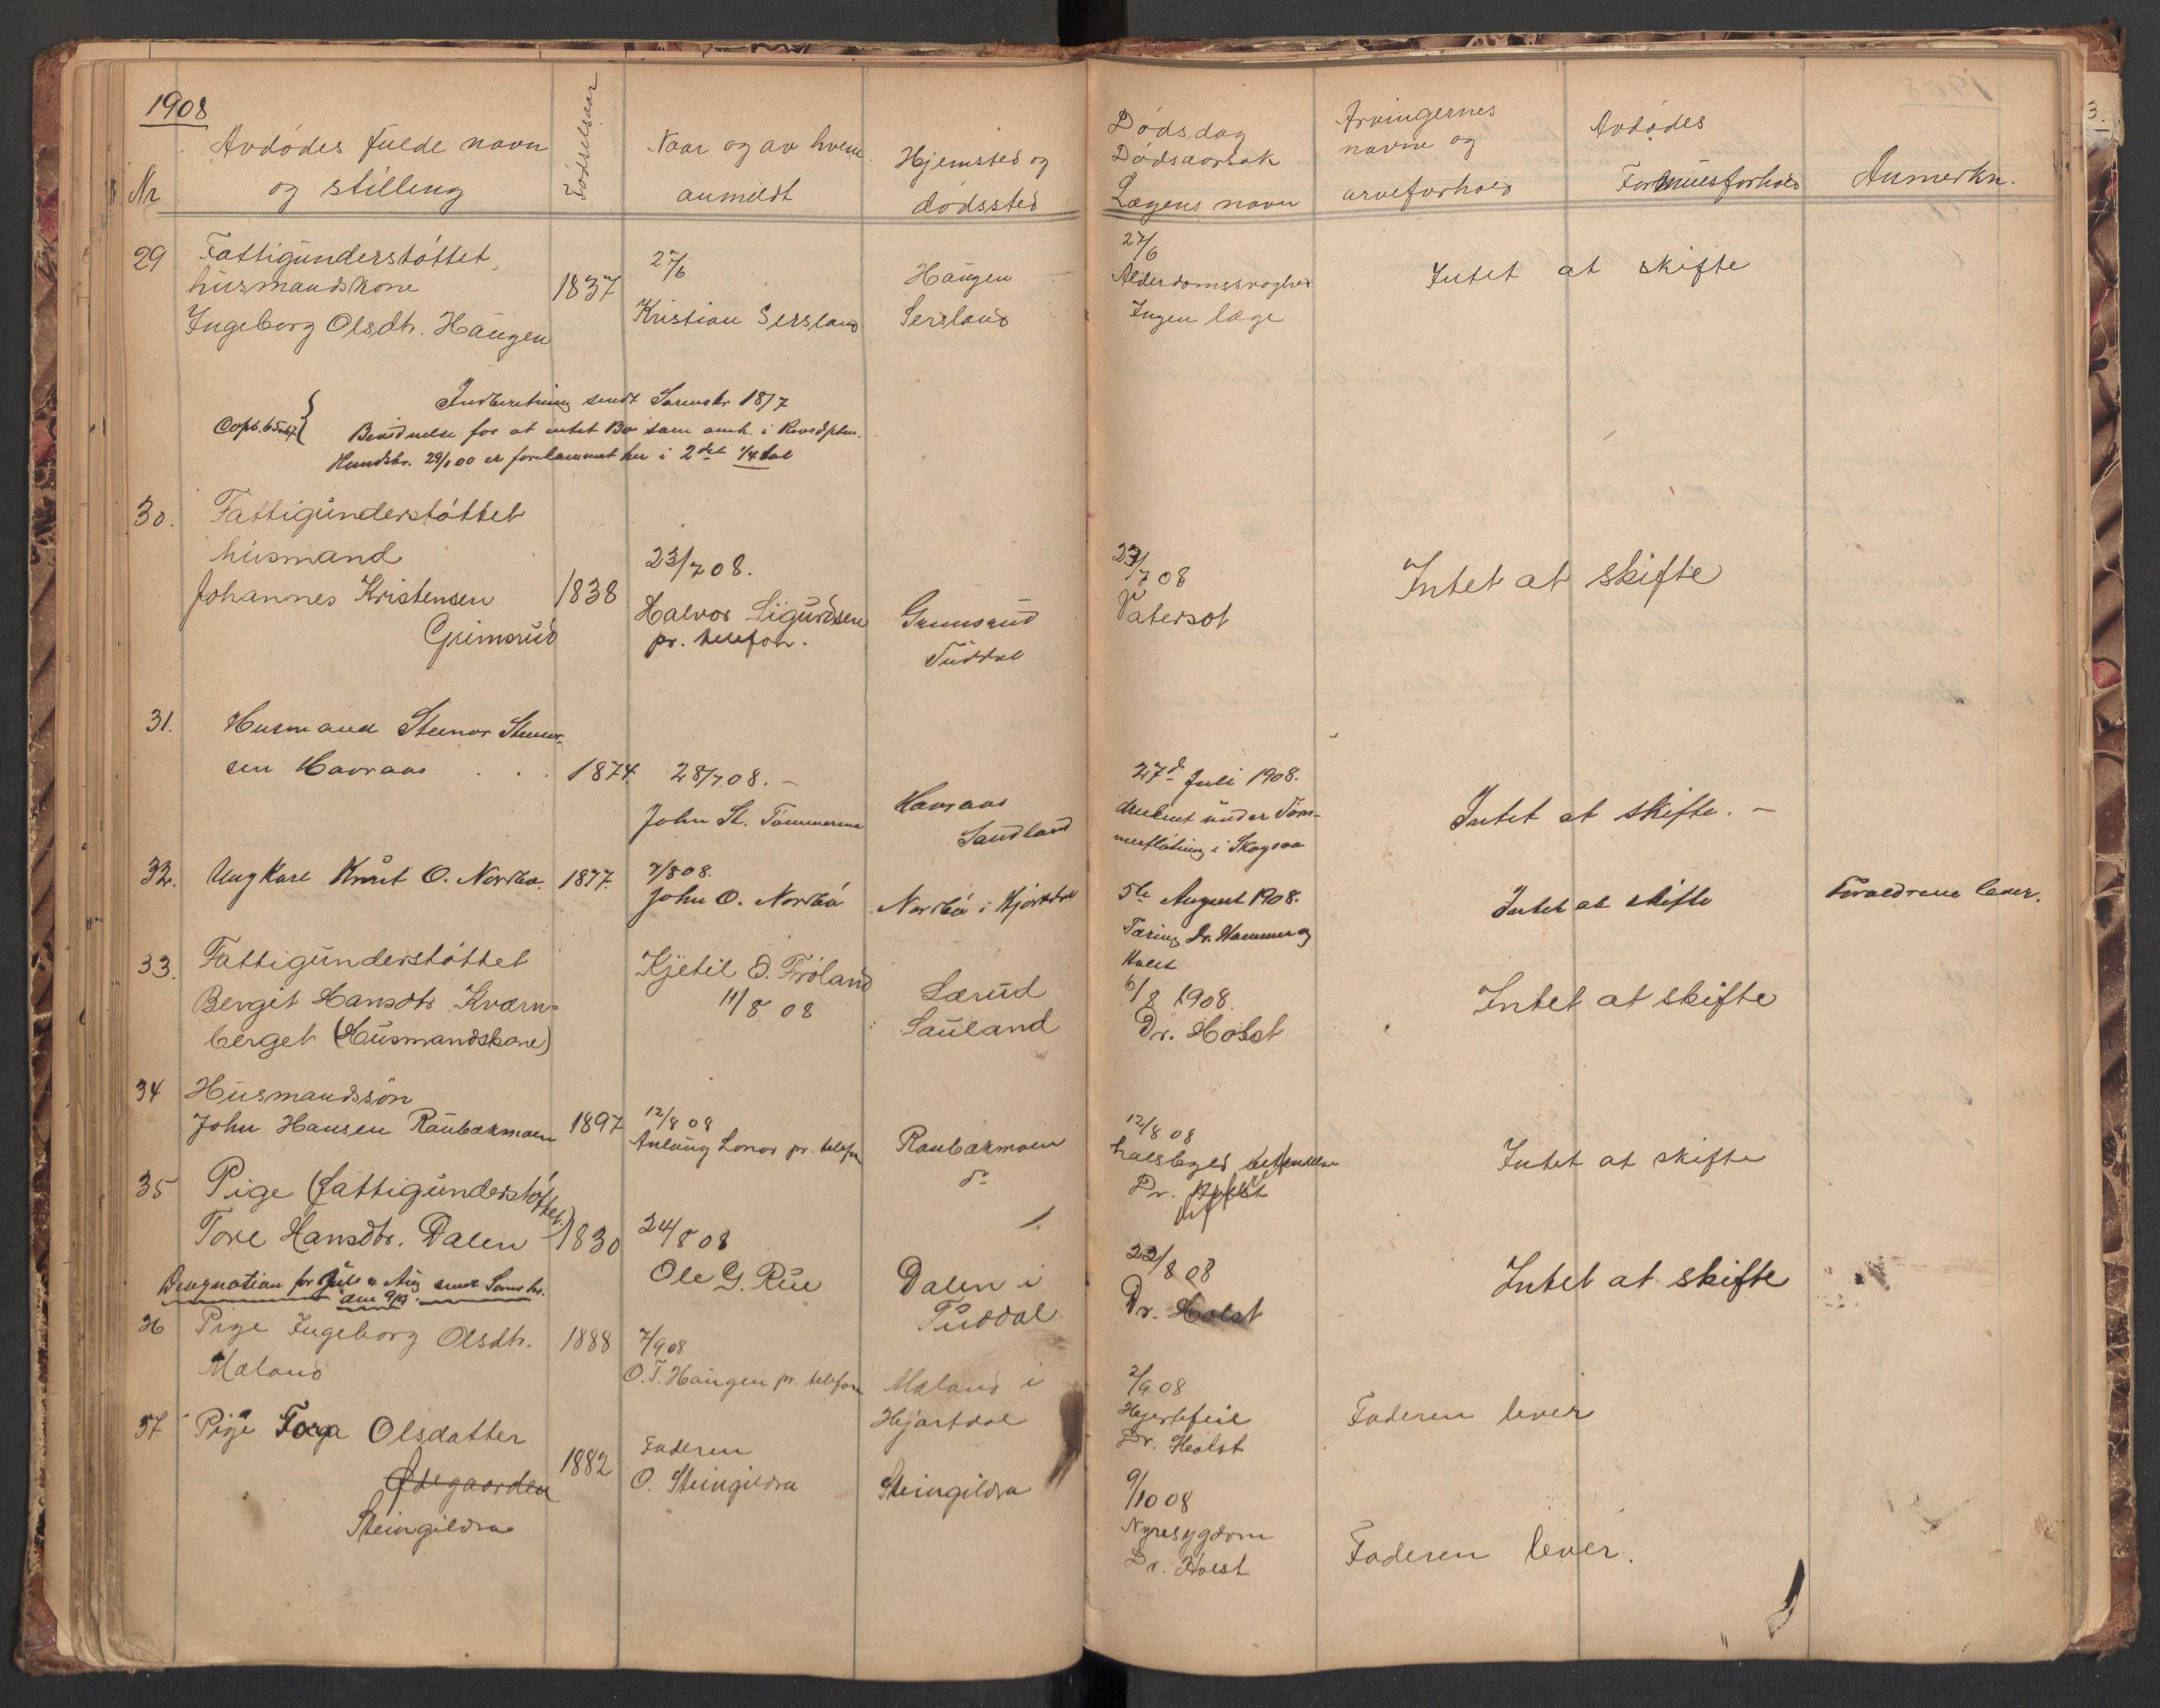 1908
Nr
Avdödes fulde navn
og stilling
Födselsaar
Naar og av hvem
anmeldt
Hjemsted og
dödssted
Dödsdag
Dödsaarsak
Lægens navn
Arvingernes
navne og
arveforhold
Avdödes
Formuesforhold
Anmerkn.
29
Fattigunderstöttet
husmandskone
Ingeborg Olsdtr. Haugen
1837
27/6
Kristian Sersland
Haugen
Sersland
27/6
Alderdomssvaghed
Ingen læge
Intet at skifte
Indberetning sendt Sorenskr 18/7
Bevidnelse for at intet Bo som omh. i
er forekommet her i 2det 1/4 aar
30.
Fattigunderstöttet
husmand
Johannes Kristensen
Grimsrud
1838
23/7 08.
Halvor Sigurdsen
pr. telefon.
Grimsrud
Tuddal
23/7 08
Vatersot
Intet at skifte
31.
Husmand Steinar Steinar-
sen Havraas . . .
1874
28/7.08. -
John St. Tömmerm
Havraas
Sandland
27d Juli 1908.
druknet under Töm-
merflötning i Skogsaa
Intet at skifte. -
32.
Ungkarl Knut O. Nordbö.
1877.
7/8 08.
John O. Nordbö
Nordbö i Hjartdal
5te August 1908.
Tæring Dr. Hammer og
Holst
Intet at skifte
Foraldrene lever.
33.
Fattigunderstöttet
Bergit Hansdtr Kværn-
berget (Husmandskone)
Kjetil O. Fröland
11/8 08
Lærud
Sauland
6/8 1908.
Dr. Holst
Intet at skifte
34
Husmandssön
John Hansen Raubækmoen
1897
12/8 08
Anlaug Lonar pr. telefon
Raubækmoen
do
12/8 08
halsbyld
Dr.
Intet at skifte
35
Pige (fattigunderstöttet)
Tore Hansdtr. Dalen
1830
24/8 08
Ole G. Rue
Dalen i
Tuddal
22/8 08
Dr. Holst
Intet at skifte
Designation for Juli & Aug sendt Sorenskr.
den 9/9.
36
Pige Ingeborg Olsdtr.
Mæland
1888
7/9 08
O. T. Haugen pr. telefon
Mæland i
Hjartdal
2/9 08
Hjertefeil
Dr. Holst
Faderen lever
37
Pige Torga Olsdatter
Ødegaarden
Steingildra
1882
Faderen
O. Steingildra
Steingildra
9/10 08
Nyresygdom
Dr. Holst
Faderen lever.
3.